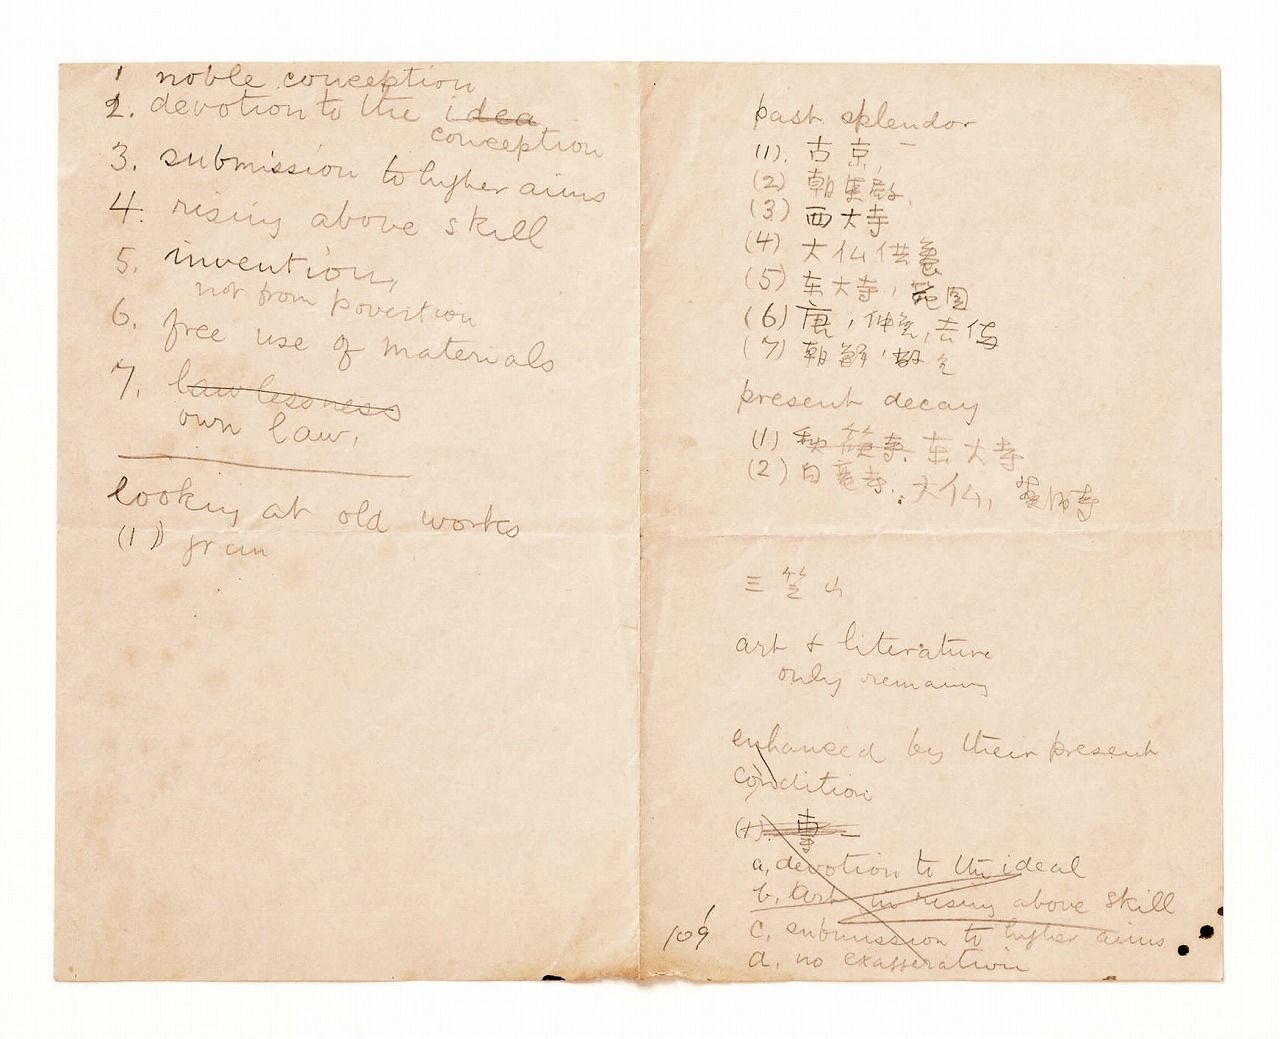 1 noble conception
2. devotion to the idea
conception
3. submission to higher aims
4. rising above skill
5. invention,
not from
6. free use of materials
7. lawlessness
own law.
looking at old works
(1)
past splendor
(1). 古京,
(2) 朝集殿,
(3) 西大寺
(4) 大仏供養
(5) 东大寺,
(6) 唐,
(7) 朝鮮,
present decay
(1) 秋篠寺. 东大寺
(2) 白毫寺. 大仏, 薬師寺
三笠山
art & literature
only remaining
enhanced by their present
condition
(1).
a, devotion to the ideal
b. Art in rising above skill
c. submission to higher aims
d. no exaggeration
109